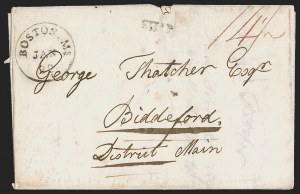 BOSTON. MS
JAN
SHIP
George Thatcher Esqr
Biddeford
District Main